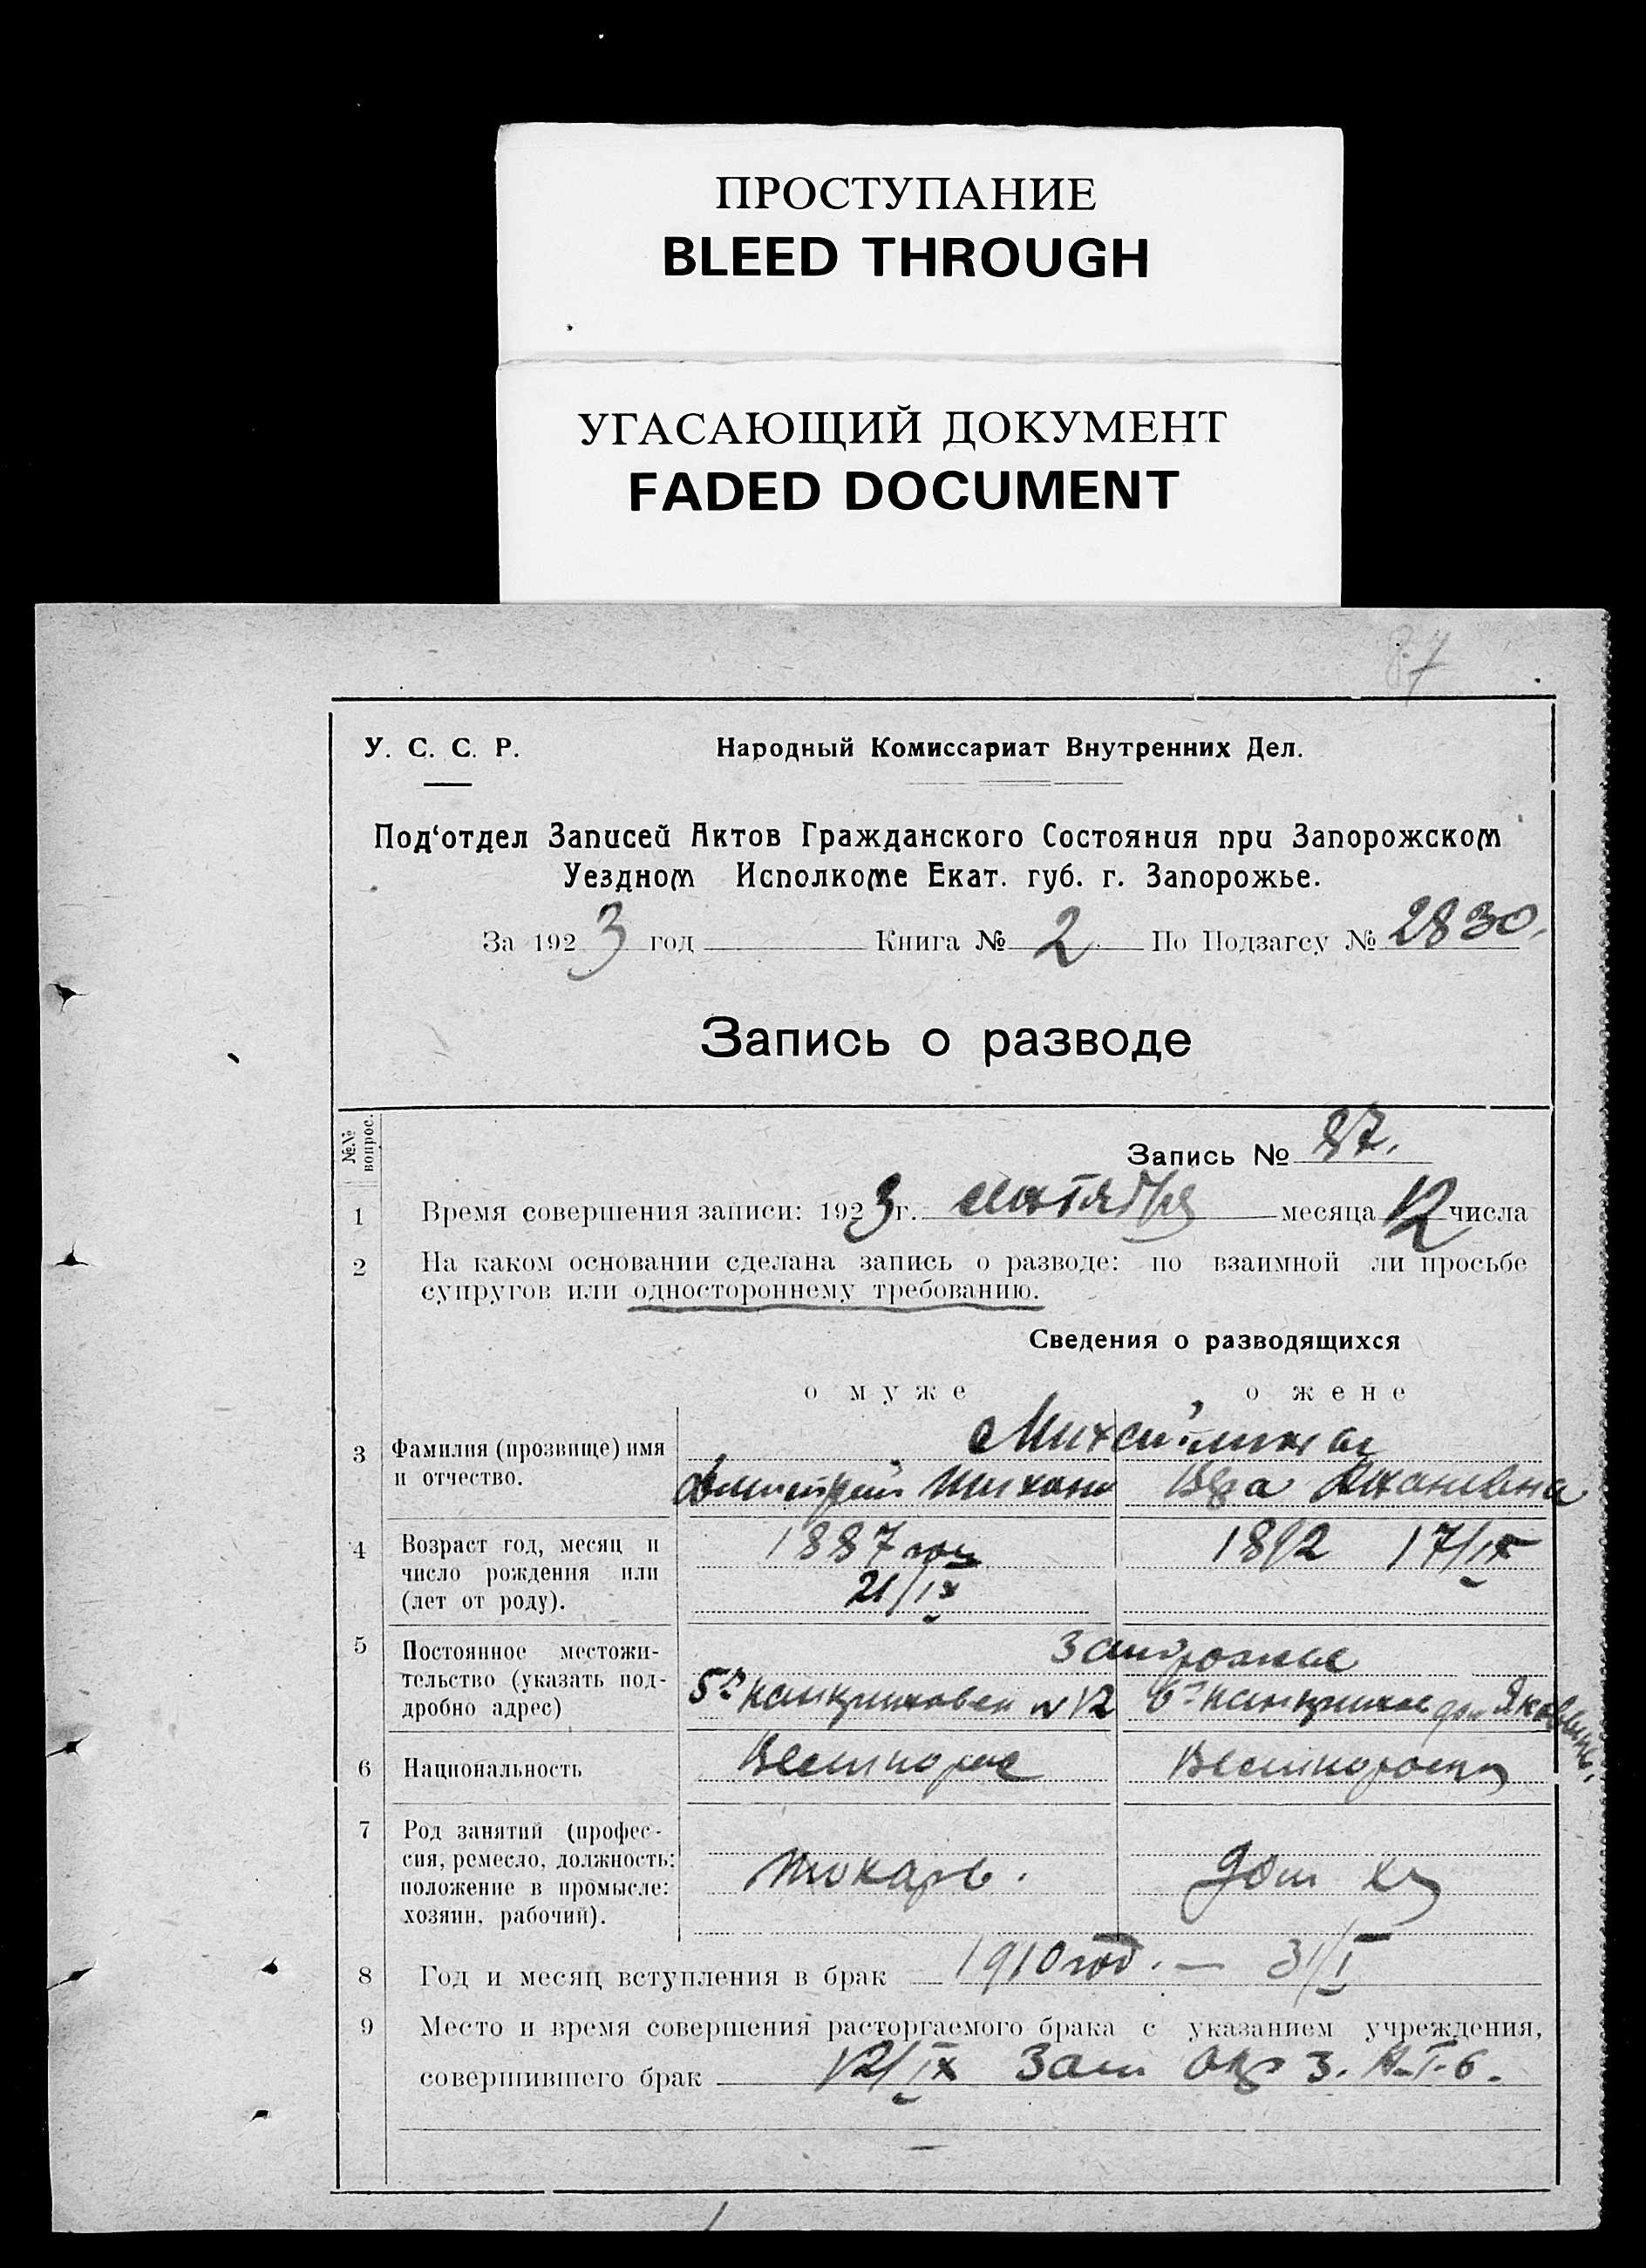 ПРОСТУПАНИЕ
BLEED THROUGH
УГАСАЮЩИЙ ДОКУМЕНТ
FADED DOCUMENT
87
У. С. С. Р. Народный Комиссариат Внутренних Дел.
Под‘отдел Записей Актов Гражданского Состояния при Запорожском
Уездном Исполкоме Екат. губ. г. Запорожье.
За 1923 год Книга № 2 По Подзагсу № 2830.
Запись о разводе
№№ вопрос.
Запись № 87.
1 Время совершения записи: 1923 г. сентября месяца 12 числа
2 На каком основании сделана запись о разводе: по взаимной ли просьбе
супругов или одностороннему требованию.
Сведения о разводящихся
о муже о жене
3 Фамилия (прозвище) имя
и отчество.
Дмитрий Тихон
4 Возраст год, месяц и
число рождения или
(лет от роду).
1887 год
21/IX
1892 17/IX
5 Постоянное местожи-
тельство (указать под-
дробно адрес)
Запорожье
№ 12
6 Национальность Великорос Великороска
7 Род занятий (профес-
сия, ремесло, должность:
положение в промысле:
хозяин, рабочий).
токарь. дом хоз
8 Год и месяц вступления в брак 1910 год. — 31/I
9 Место и время совершения расторгаемого брака с указанием учреждения,
совершившего брак 12/IX Зап